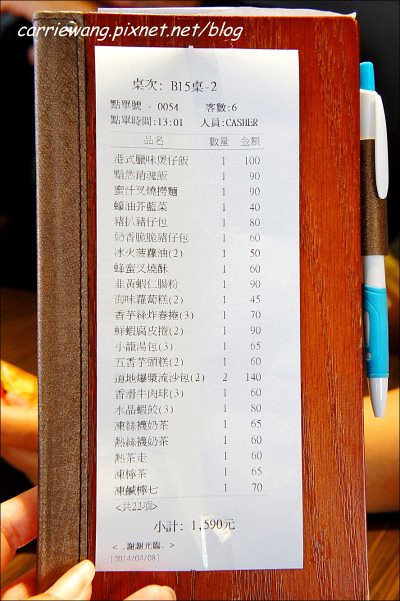 carriewang.pixnet.net/blog
桌次: B15桌-2
點單號 - 0054 客數:6
點單時間:13:01 人員:CASHER
品名 數量 金額
港式臘味煲仔飯 1 100
黯然銷魂飯 1 90
蜜汁叉燒撈麵 1 90
蠔油芥藍菜 1 40
豬扒豬仔包 1 80
奶香脆脆豬仔包 1 60
冰火菠蘿油(2) 1 50
蜂蜜叉燒酥 1 60
韭黃蝦仁腸粉 1 90
海味蘿蔔糕(2) 1 45
香芋絲炸春捲(3) 1 70
鮮蝦腐皮捲(2) 1 90
小籠湯包(3) 1 65
五香芋頭糕(2) 1 60
道地爆漿流沙包(2) 2 140
香滑牛肉球(3) 1 60
水晶蝦餃(3) 1 80
凍絲襪奶茶 1 65
熱絲襪奶茶 1 60
熱茶走 1 60
凍檸茶 1 65
凍鹹檸七 1 70
<共22項>
小計: 1,590元
< .謝謝光臨. >
[2014/04/08]